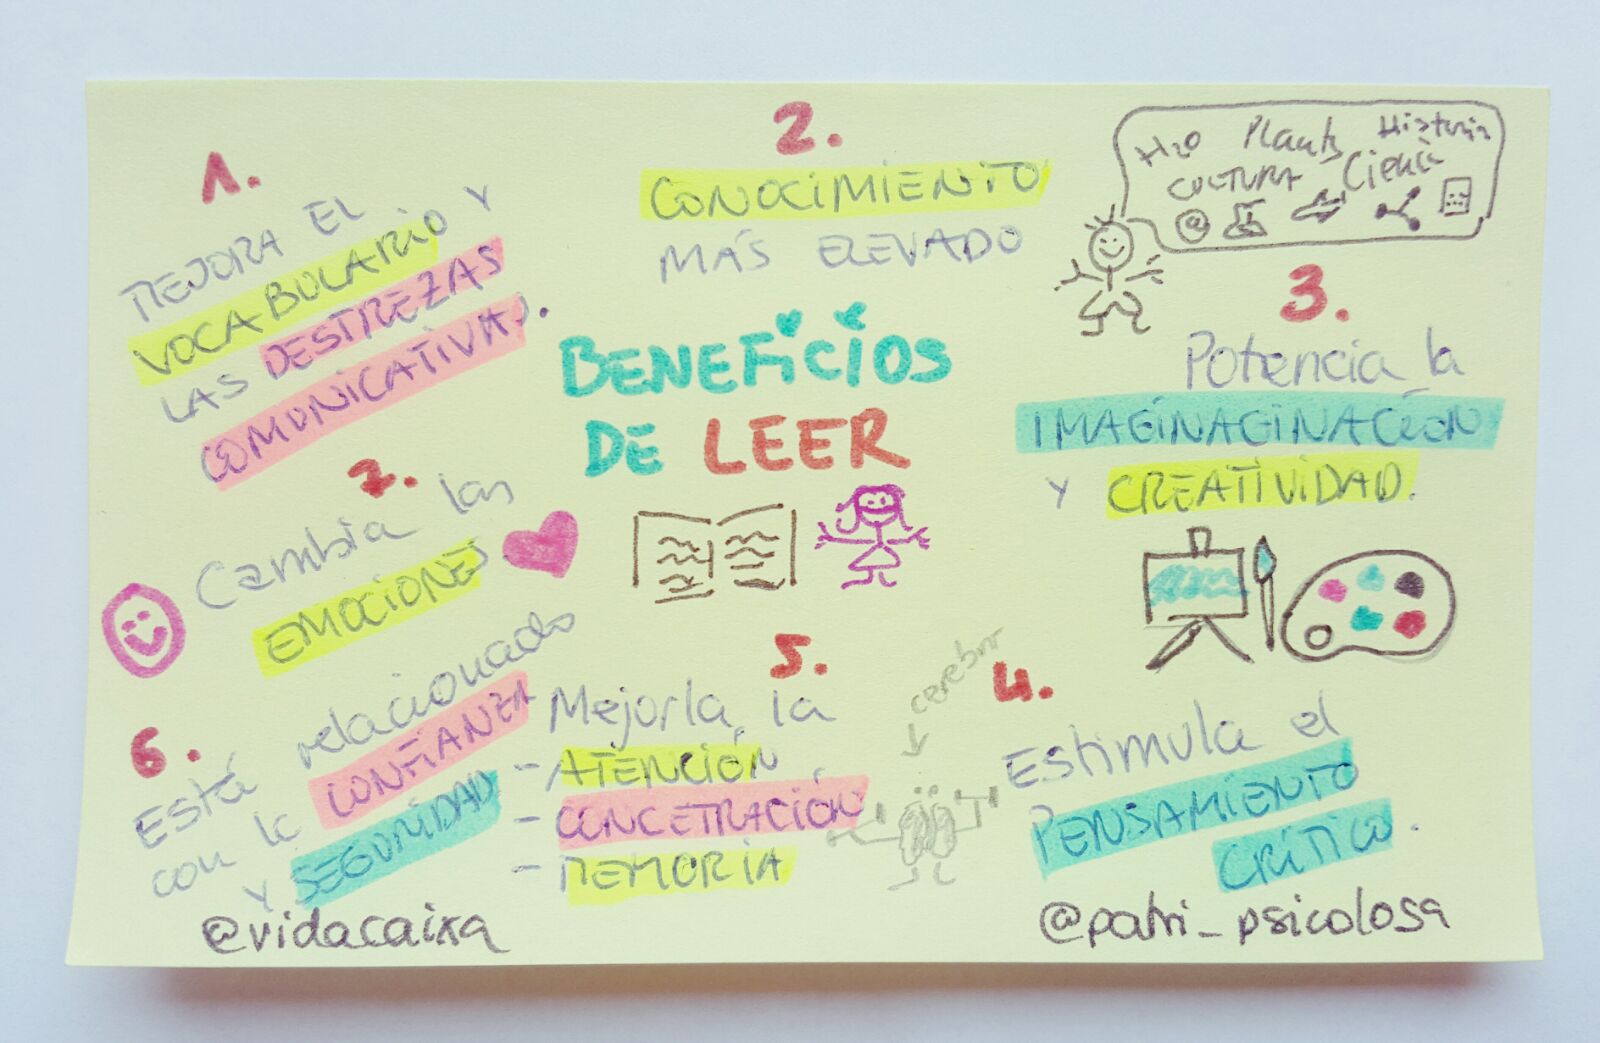 1.
MEJORA EL
VOCABULARIO Y
LAS DESTREZAS
COMUNICATIVAS.
2.
CONOCIMIENTO
MÁS ELEVADO
H2O Plants Historia
CULTURA Ciencia
@
BENEFICIOS
DE LEER
3.
Potencia la
IMAGINAGINACIÓN
Y CREATIVIDAD.
7.
Cambia las
EMOCIONES
4.
Estimula el
PENSAMIENTO
CRÍTICO.
5.
Mejorla la
- ATENCIÓN
- CONCETRACIÓN
- MEMORIA
cerebro
6.
Está relacionado
con la CONFIANZA
Y SEGURIDAD
@vidacaixa
@patri_psicologa